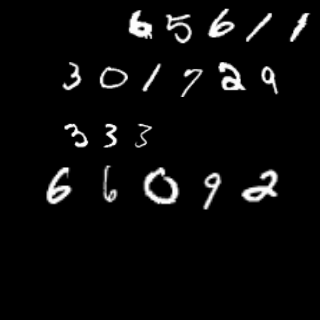 65611
301729
333
66092